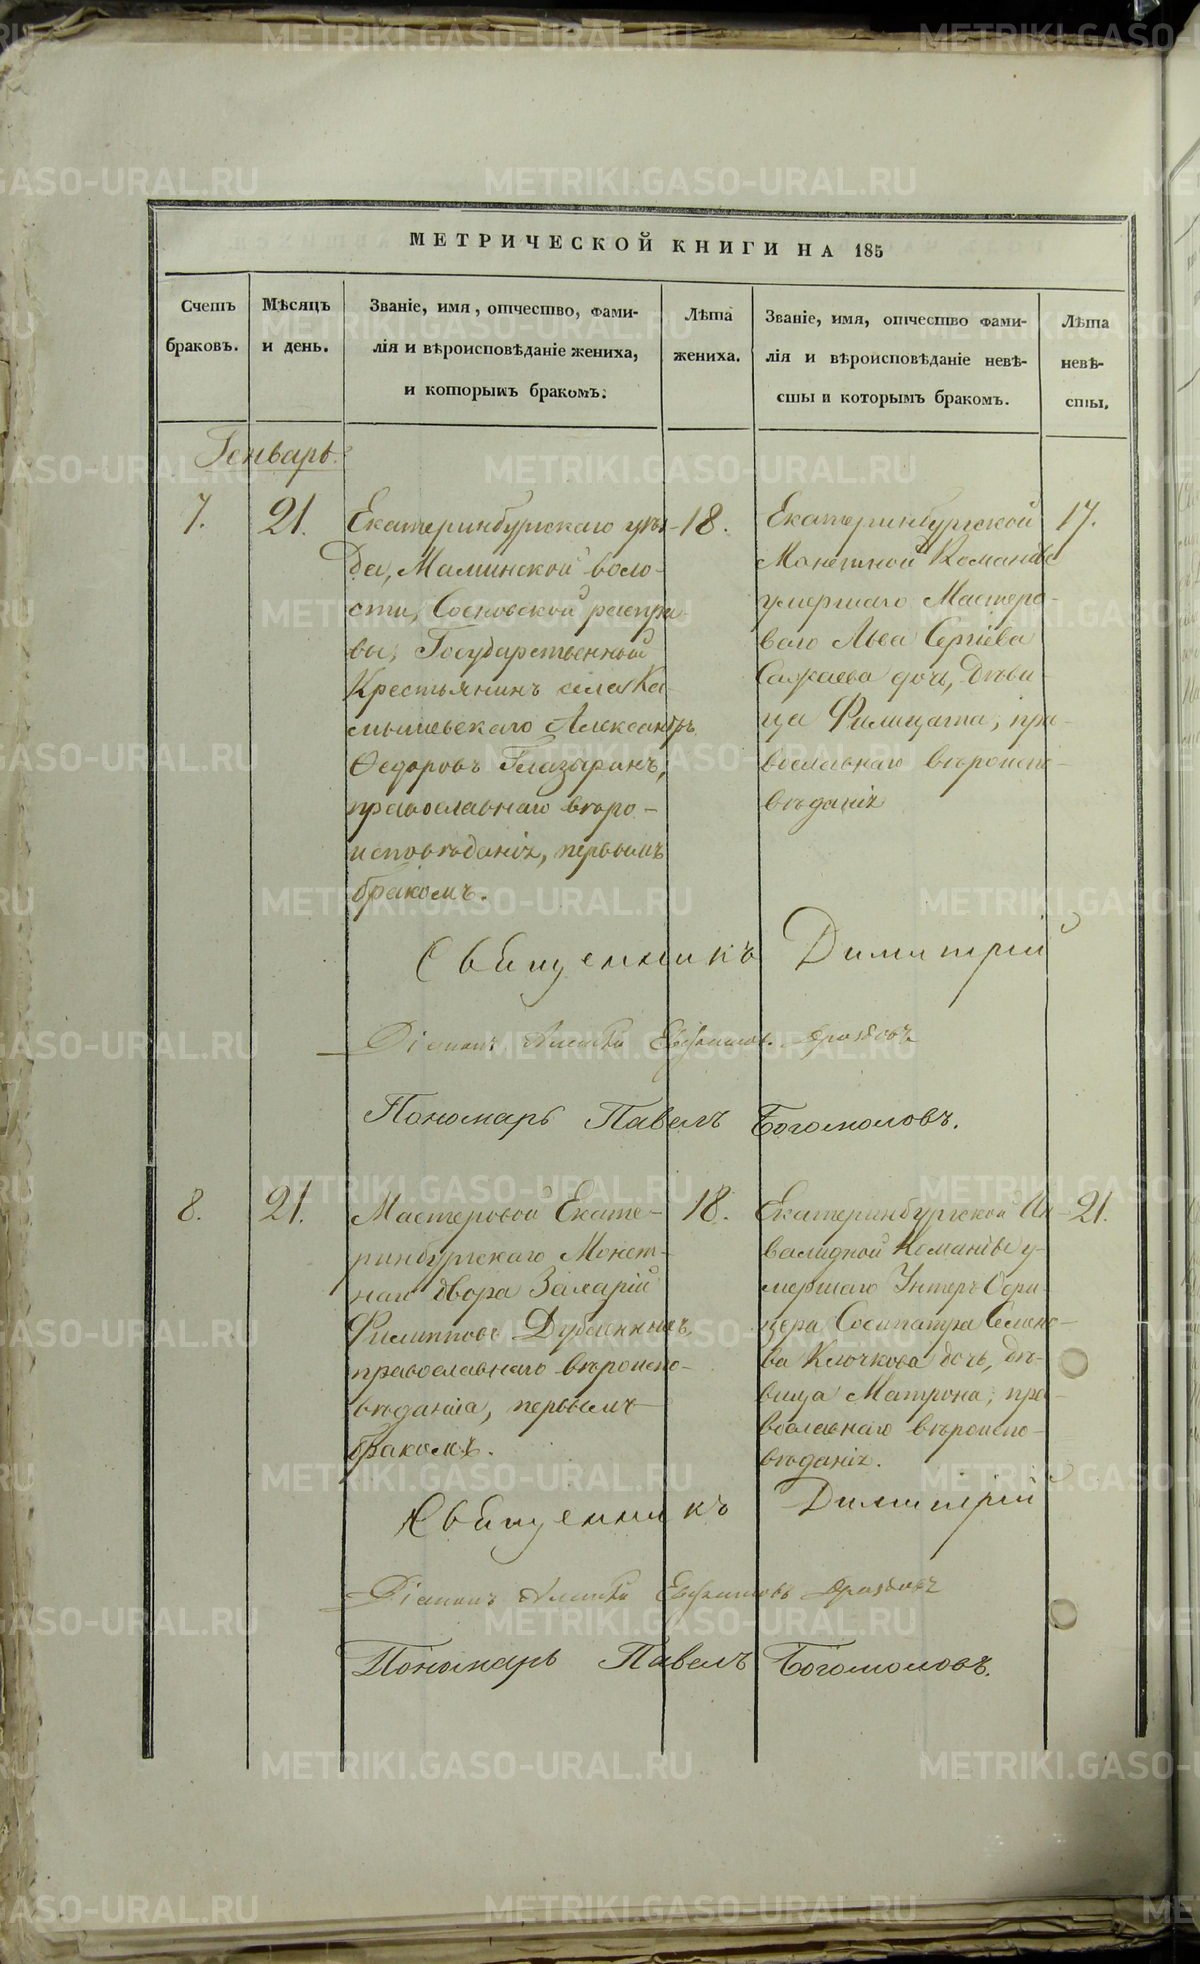 МЕТРИЧЕСКОЙ КНИГИ НА 185
Счетъ браковъ.
Мѣсяцъ и день.
Званіе, имя, отчество, фами-
лія и вѣроисповѣданіе жениха,
и которымъ бракомъ.
Лѣта жениха.
Званіе, имя, отчество фами-
лія и вѣроисповѣданіе невѣ-
сты и которымъ бракомъ.
Лѣта невѣ-
сты.
Генварь.
7.
21.
Екатеринбургскаго уѣз-
да, Маминской воло-
сти, Сосновской распра-
вы, Государственный
Крестьянинъ села Ка-
мышевскаго Александръ
Ѳедоровъ Глазыринъ,
православнаго вѣро-
исповѣданія, первымъ
бракомъ.
18.
Екатеринбургской
Монетной Команды
умершаго Мастеро-
ваго Льва Сергіева
дочь, дѣви-
ца Филицата, пра-
вославнаго вѣроиспо-
вѣданія
17.
Священникъ Димитрій
Діаконъ Евфимовъ Дроздовъ
Пономарь Павелъ Богомоловъ.
8.
21.
Мастеровой Екате-
ринбургскаго Монет-
наго двора Захарій
Филипповъ
православнаго вѣроиспо-
вѣданія, первымъ
бракомъ.
18.
Екатеринбургской Ин-
валидной Команды у-
мершаго Унтеръ Офи-
цера Сосипатра Семено-
ва Ключкова дочь, дѣ-
вица Матрона, пра-
вославнаго вѣроиспо-
вѣданія.
21.
Священникъ Димитрій
Діаконъ Евфимовъ Дроздовъ
Пономарь Павелъ Богомоловъ.
METRIKI.GASO-URAL.RU